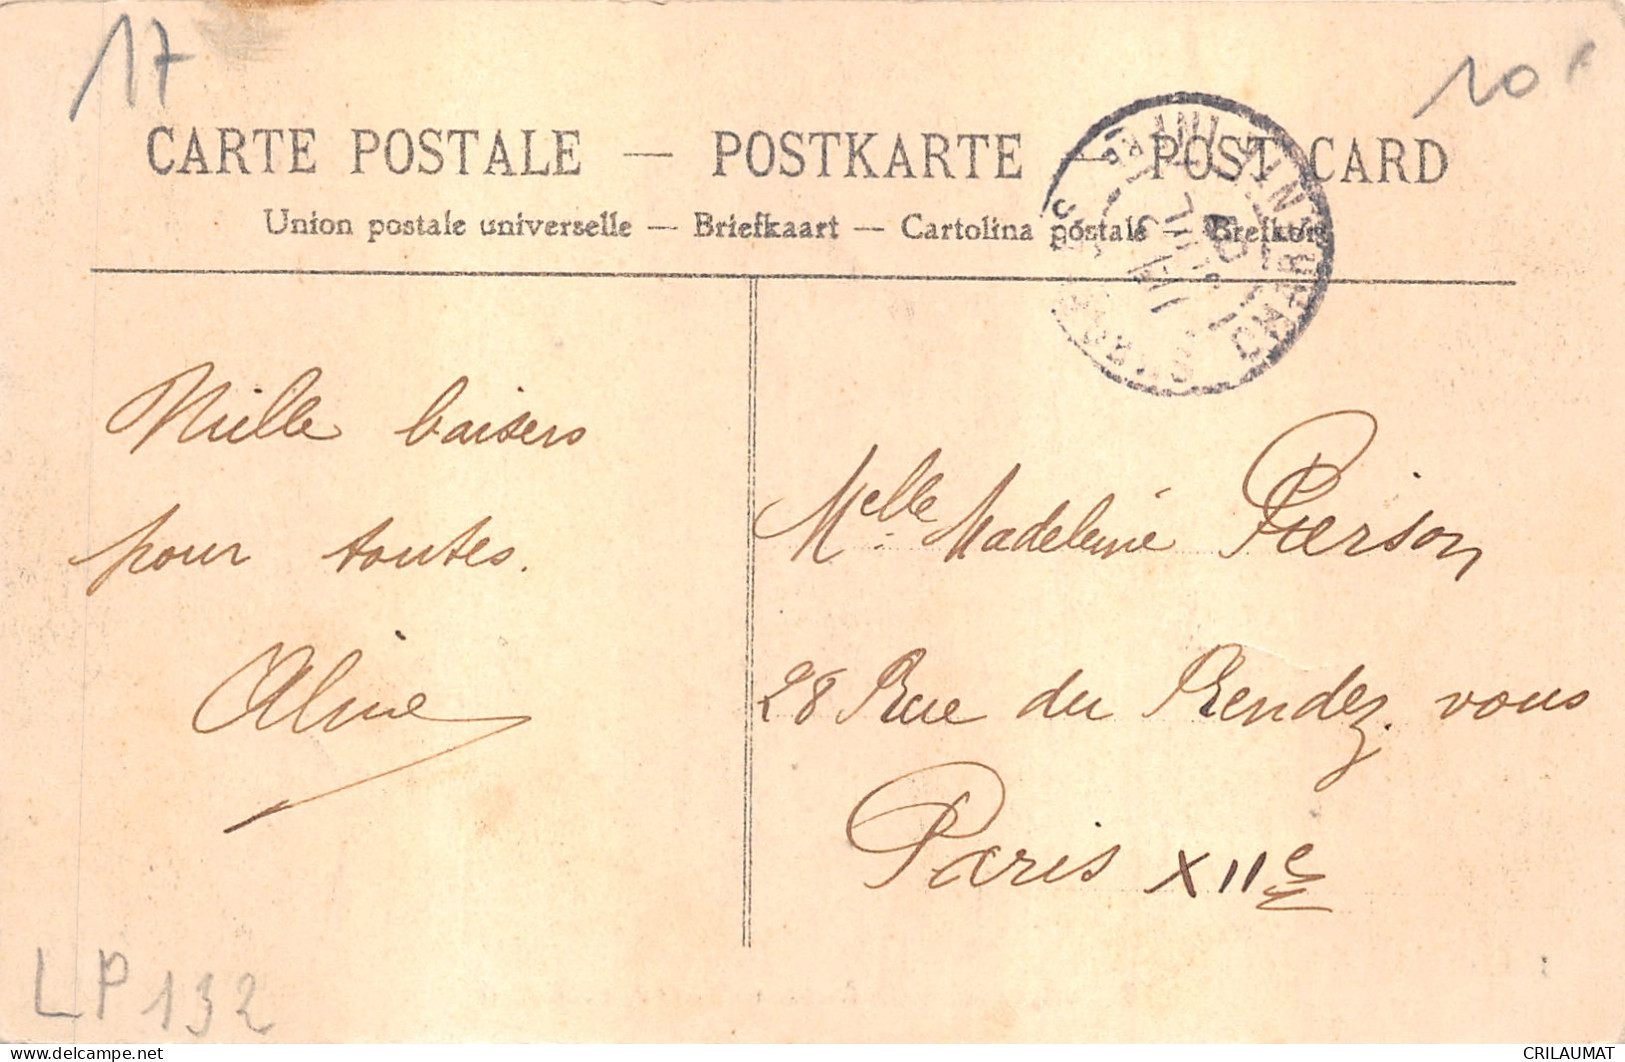 17
10 F
CARTE POSTALE — POSTKARTE — POST CARD
Union postale universelle — Briefkaart — Cartolina postale — Brefkort
Mille baisers
pour toutes.
Aline
Melle Madeleine Pierson
28 Rue du Rendez vous
Paris XIIe
LP 132
CRILAUMAT